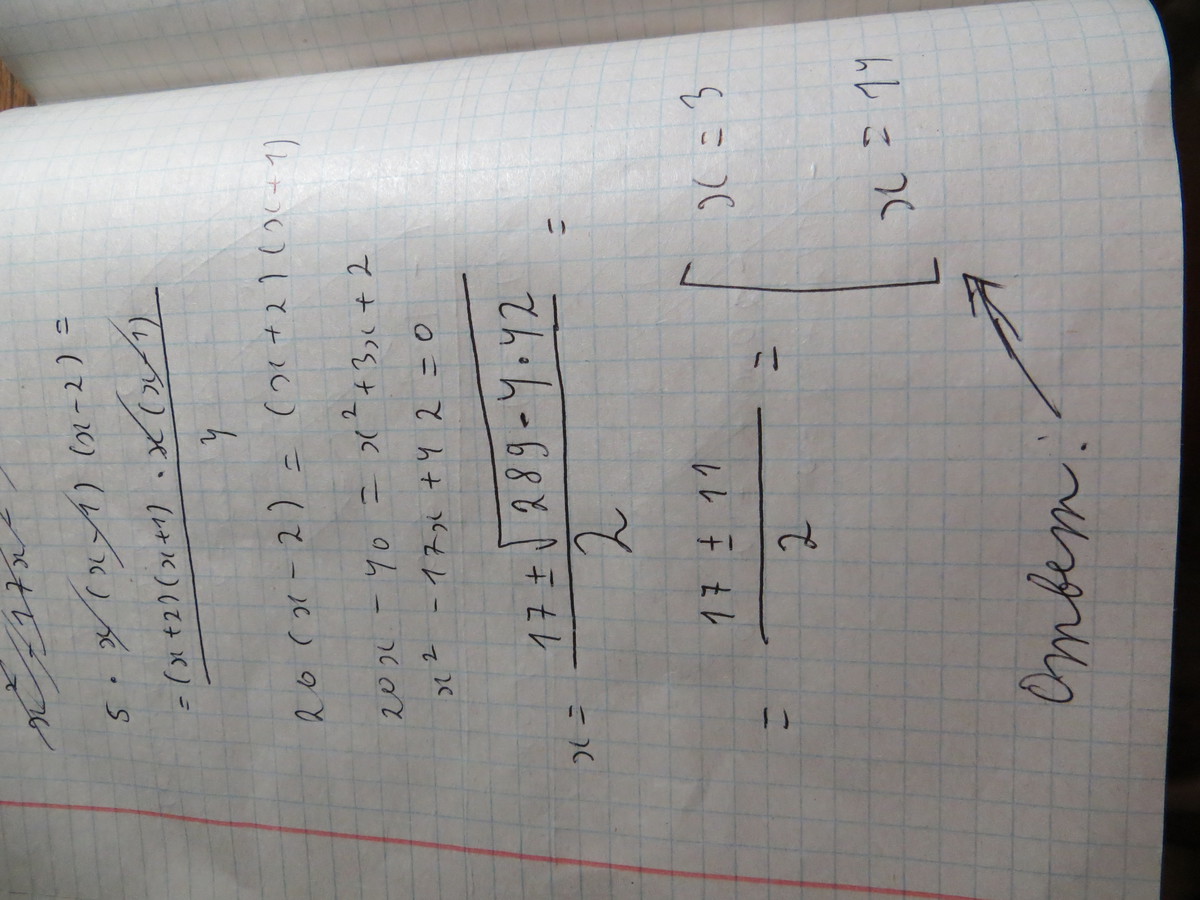 x² - 17x²
5 · x (x-1) (x-2) =
= (x+2)(x+1) · x (x-1)
4
20 (x-2) = (x+2) (x+1)
20x - 40 = x² + 3x + 2
x² - 17x + 42 = 0
x = 17 ± √289-4·42 =
2
= 17 ± 11 =
2
x = 3
x = 14
Ответ: